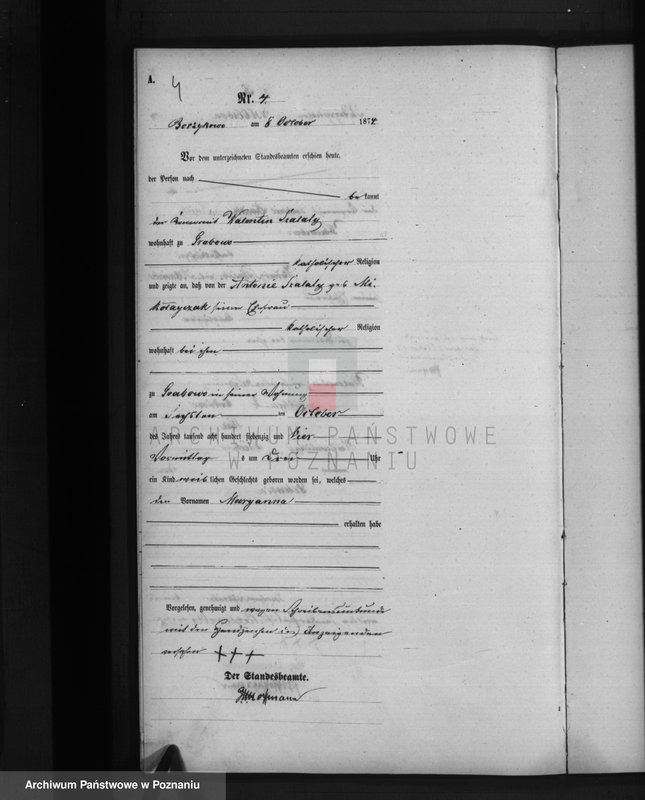 A. 4
Nr. 4.
Borzykowo am 8 October 1874
Vor dem unterzeichneten Standesbeamten erschien heute,
der Person nach
bekannt
der Valentin Szalaty
wohnhaft zu Grabowo
katholischer Religion
und zeigte an, daß von der Antonie Szalaty geb Mi-
kolayczak seiner Ehefrau
katholischer Religion
wohnhaft bei ihm
zu Grabowo in seiner Wohnung
am sechsten ten October
des Jahres tausend acht hundert siebenzig und vier
Vormittags um drei Uhr
ein Kind weiblichen Geschlechts geboren worden sei, welches
den Vornamen Maryanna
erhalten habe
Vorgelesen, genehmigt und wegen Schreibensunkunde
mit den Handzeichen des Anzeigenden
versehen +++
Der Standesbeamte.
ARCHIWUM PAŃSTWOWE
W POZNANIU
Archiwum Państwowe w Poznaniu